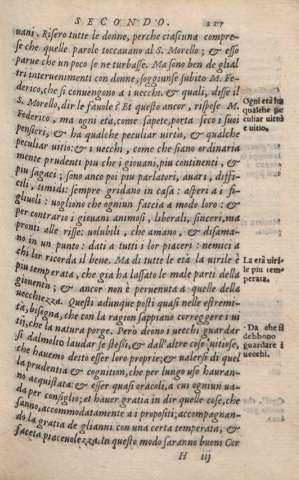 SECONDO. 227
uani. Risero tutte le donne, perche ciascuna compre-
se che quelle parole toccauano al S. Morello; & esso
parue che un poco se ne turbasse. Ma sono ben de gli al
tri interuenimenti con donne, soggiunse subito M. Fe-
derico, che si conuengono a i uecchi. & quali, disse il
S. Morello, dir le fauole? Et questo ancor, rispose M.
Federico, ma ogni età, come sapete, porta seco i suoi
pensieri, & ha qualche peculiar uirtù, & qualche
peculiar uitio: & i uecchi, come che siano ordinaria
mente prudenti piu che i giouani, piu continenti, &
piu sagaci; sono anco poi piu parlatori, auari, diffi-
cili, timidi: sempre gridano in casa: asperi a i fi-
gliuoli: uogliono che ogniun faccia a modo loro: &
per contrario i giouani animosi, liberali, sinceri, ma
pronti alle risse: uolubili, che amano, & disama-
no in un punto: dati a tutti i lor piaceri: nemici a
chi lor ricorda il bene. Ma di tutte le età la uirile è
piu temperata, che gia ha lassato le male parti della
giouentù; & ancor non è peruenuta a quelle della
uecchiezza. Questi adunque posti quasi nelle estremi-
tà, bisogna, che con la ragion sappiano correggere i ui
tij, che la natura porge. Però deono i uecchi guardar
si dal molto laudar se stessi, & dall'altre cose uitiose,
che hauemo detto esser loro proprie; & ualersi di quel
la prudentia & cognition, che per lungo uso hauran-
no acquistata: & esser quasi oracoli, a cui ogniun ua-
da per consiglio; et hauer gratia in dir quelle cose, che
sanno, accommodatamente a i propositi; accompagnan-
do la gratia de gli anni con una certa temperata, &
faceta piaceuolezza. In questo modo saranno buoni Cor
H iij
Ogni età ha
qualche pe
culiar uirtù
e uitio.
La età uiri-
le piu tem-
perata.
Da che si
debbono
guardare i
uecchi.